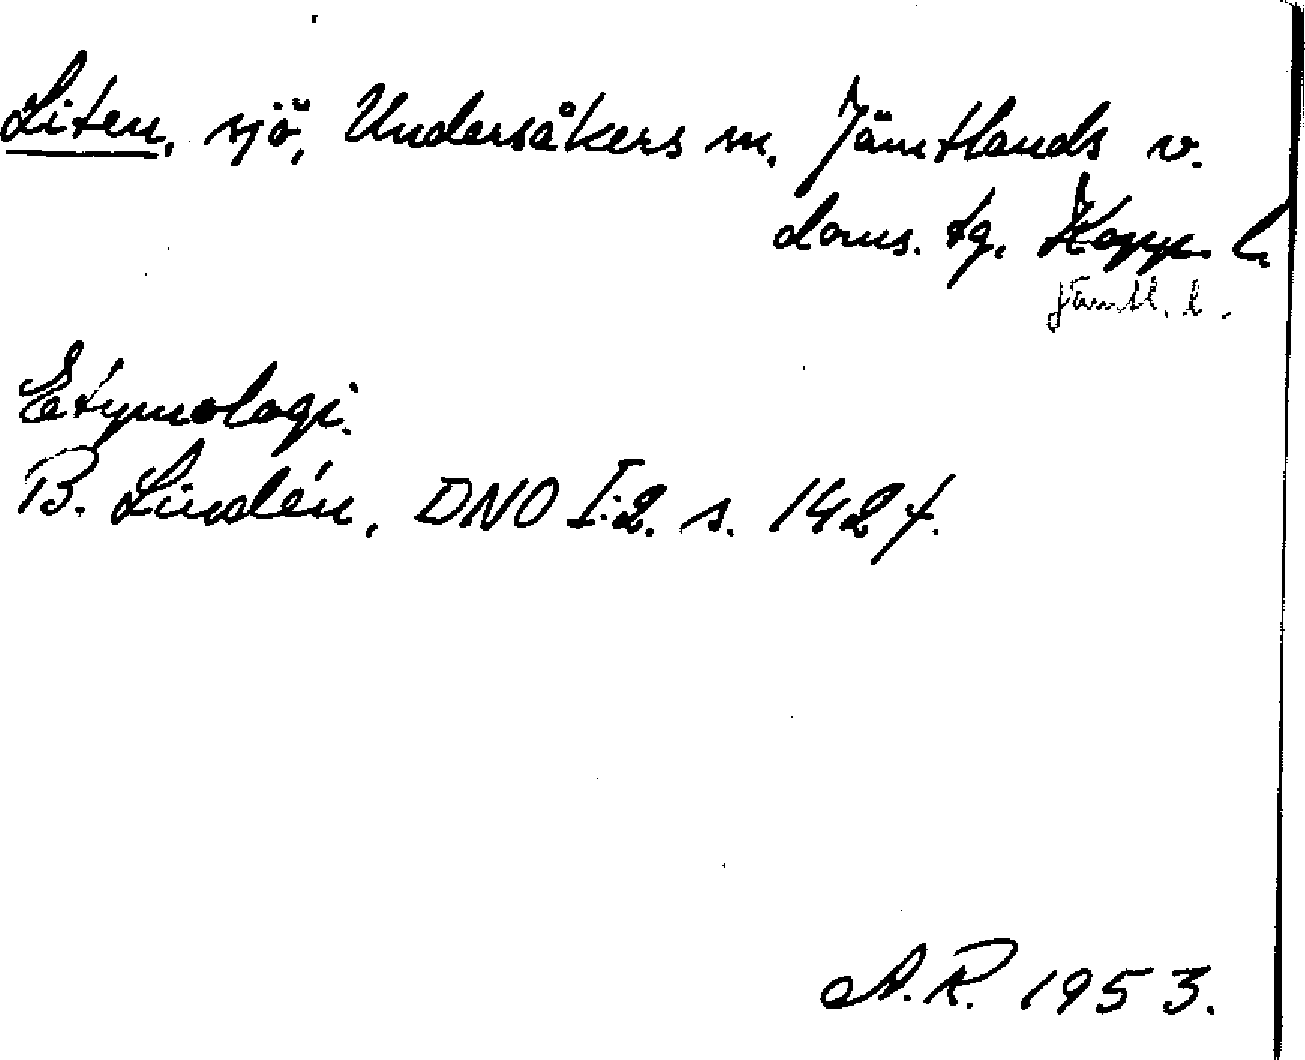 Liten, sjö, Undersåkers sn. Jämtlands v.
doms. tg. Kopp. l.
Jämtl. l.
Etymologi.
B. Lindén, DNO I:2. s. 142 f.
A.R. 1953.